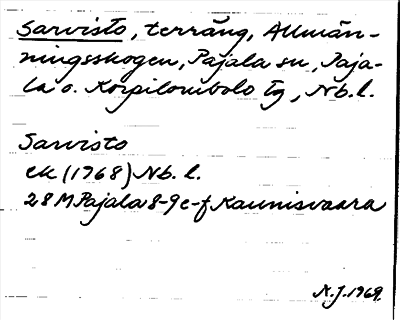 Sarvisto, terräng, Allmän-
ningsskogen, Pajala sn, Paja-
la o. Korpilombolo tg, Nb. l.
Sarvisto
ek (1968) Nb. l.
28 M Pajala 8-9 e-f Kaunisvaara
N.J. 1969.